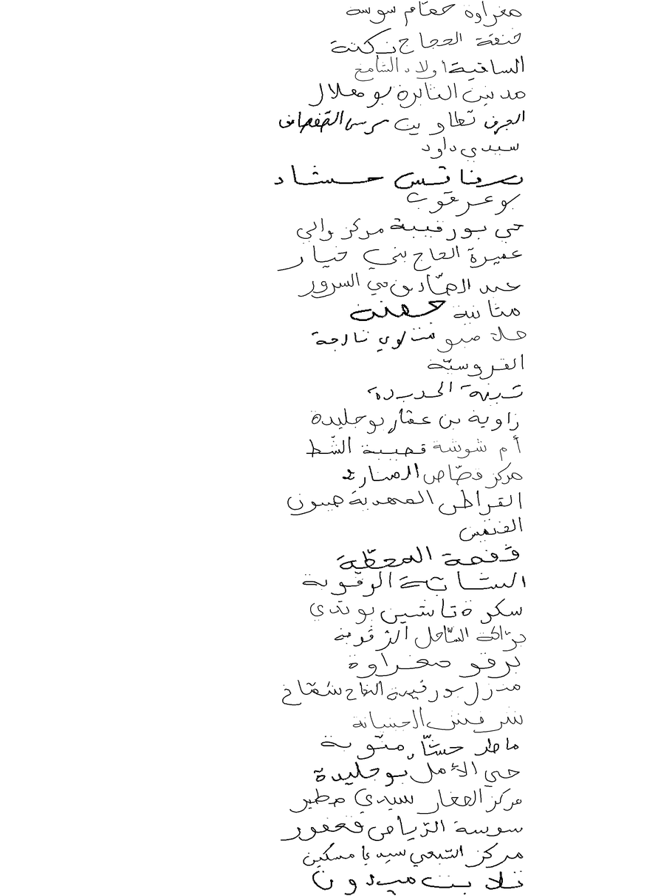 مغراوة حمّام سوسة
خنقة الحجاج زكنة
الساقية اولاد الشامخ
مدنين الثائرة بوهلال
الجرف تطاوين مرسى القصاف
سيدي داود
صفاقس حشاد
بوعرقوب
حي بورقيبة مركز والي
عميرة الحاج بني خيار
عبد الصّادق مي السرور
متانية حفنة
منداوي نارجة
الفروسيّة
تبينة الحديدة
زاوية بن عمّار بوجليدة
أم شوشة قصيبة الشط
مركز قصّاص المنارة
القراطن المهدية ميون
الفنفس
فجة المحطّة
الشابة الرقوبة
سكرة تاشين بوندي
درّاكة السّاحل الزقوبة
برقو مغراوة
منزل بورقيبة الفاج شمّاخ
شرفش الحشانة
ماطر حشّاد منوبة
حي الأمل بوجليدة
مركز العفار سيدي مطير
سوسة الرّياض قعفور
مركز التبعي سيديا مسكين
تلابت ميدون